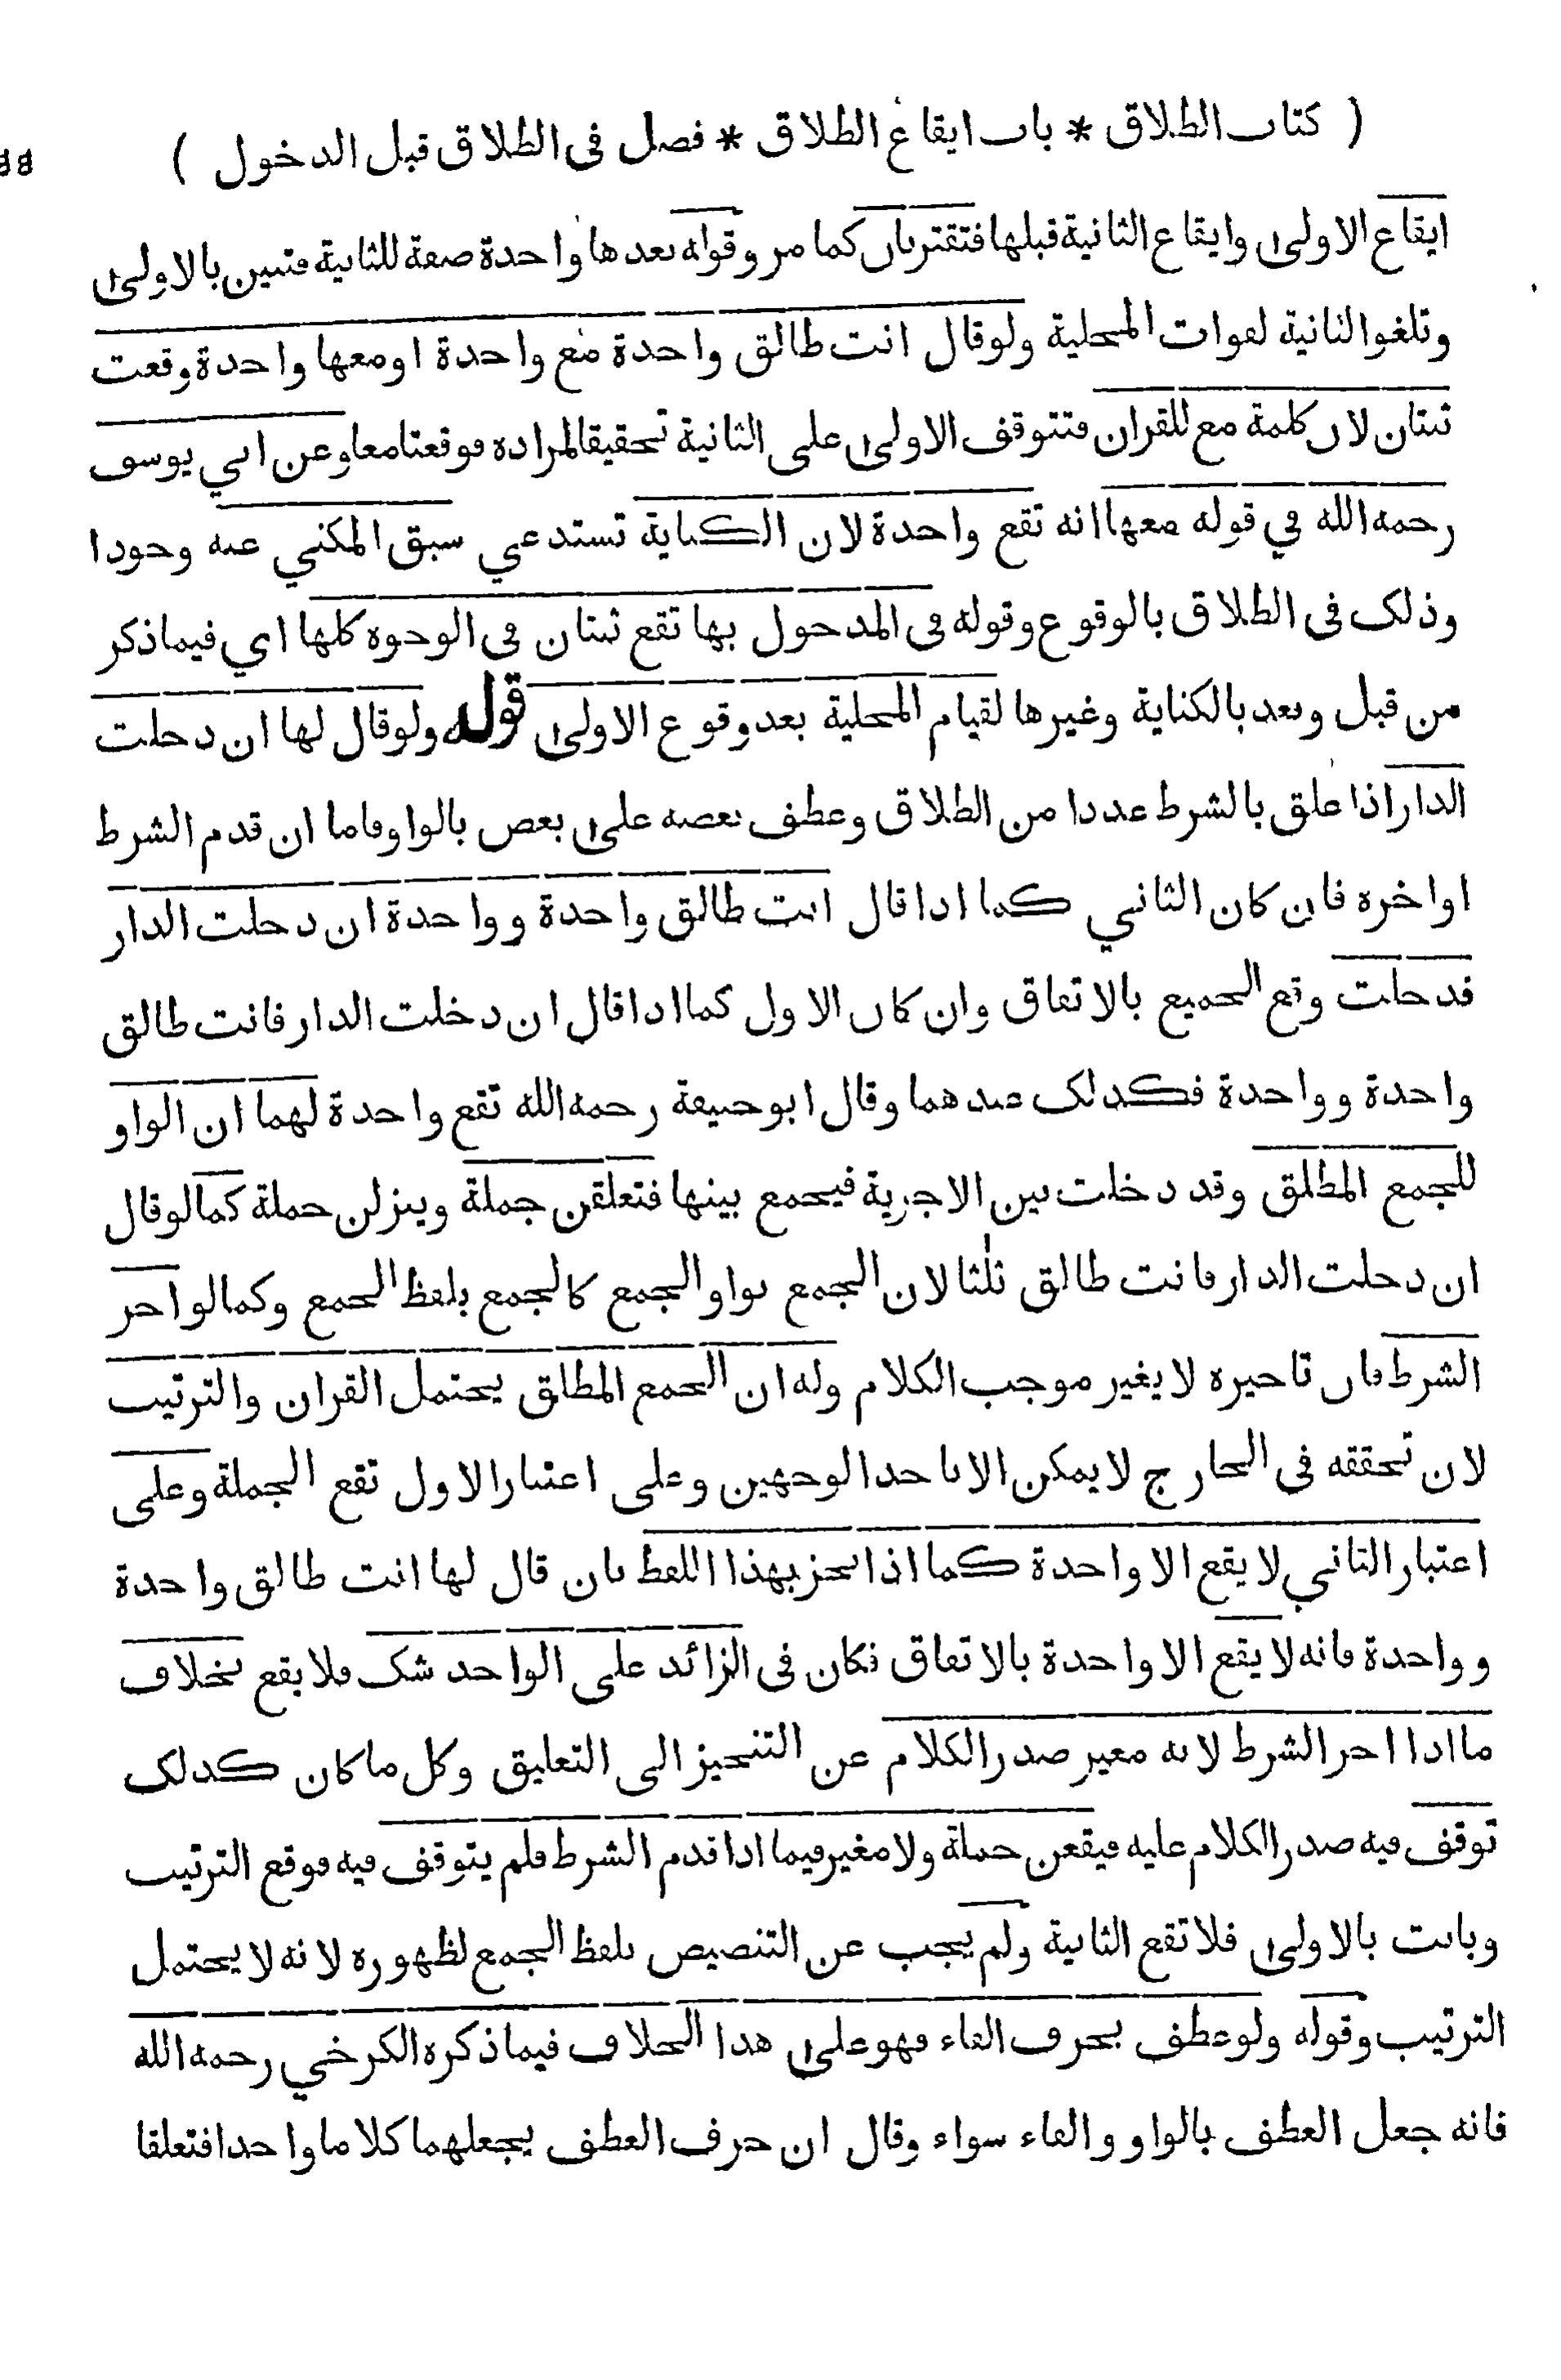 ( كتاب الطلاق * باب ايقاع الطلاق * فصل فى الطلاق قبل الدخول )
ايقاع الاولى وايقاع الثانية قبلها فتقترنان كما مر وقوله بعدها واحدة صفة للثانية فتبين بالاولى
وتلغو الثانية لفوات المحلية ولوقال انت طالق واحدة مع واحدة اومعها واحدة وقعت
ثنتان لان كلمة مع للقران فتتوقف الاولى على الثانية تحقيقا لمراده فوقعتا معا وعن ابي يوسف
رحمه الله في قوله معها انه تقع واحدة لان الكناية تستدعي سبق المكني عنه وجودا
وذلك فى الطلاق بالوقوع وقوله في المدخول بها تقع ثنتان في الوجوه كلها اي فيما ذكر
من قبل وبعد بالكناية وغيرها لقيام المحلية بعد وقوع الاولى قوله ولوقال لها ان دخلت
الدار اذا علق بالشرط عددا من الطلاق وعطف بعضه على بعض بالواو فاما ان قدم الشرط
اواخره فان كان الثاني كما اذا قال انت طالق واحدة وواحدة ان دخلت الدار
فدخلت وقع الجميع بالاتفاق وان كان الاول كما اذا قال ان دخلت الدار فانت طالق
واحدة وواحدة فكذلك عندهما وقال ابوحنيفة رحمه الله تقع واحدة لهما ان الواو
للجمع المطلق وقد دخلت بين الاجزية فيجمع بينها فتعلقن جملة وينزلن جملة كما لوقال
ان دخلت الدار فانت طالق ثلثا لان الجمع بواو الجمع كالجمع بلفظ الجمع وكما لو اخر
الشرط فان تاخيره لا يغير موجب الكلام وله ان الجمع المطلق يحتمل القران والترتيب
لان تحققه فى الخارج لايمكن الا باحد الوجهين وعلى اعتبار الاول تقع الجملة وعلى
اعتبار الثاني لا يقع الا واحدة كما اذا نجز بهذا اللفظ بان قال لها انت طالق واحدة
وواحدة فانه لا يقع الا واحدة بالاتفاق فكان فى الزائد على الواحد شك فلا يقع بخلاف
ما اذا اخر الشرط لانه مغير صدر الكلام عن التنجيز الى التعليق وكل ما كان كذلك
توقف فيه صدر الكلام عليه فيقعن جملة ولا مغير فيما اذا قدم الشرط فلم يتوقف فيه فوقع الترتيب
وبانت بالاولى فلا تقع الثانية ولم يجب عن التنصيص بلفظ الجمع لظهوره لانه لا يحتمل
الترتيب وقوله ولوعطف بحرف الفاء فهوعلى هذا الخلاف فيما ذكره الكرخي رحمه الله
فانه جعل العطف بالواو والفاء سواء وقال ان حرف العطف يجعلهما كلاما واحدا فتعلقا